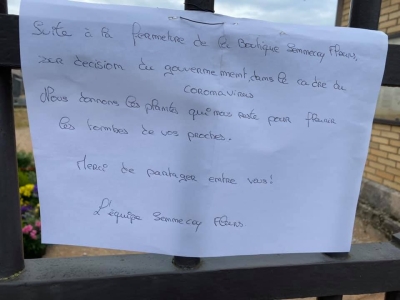 Suite à la fermeture de la Boutique Semmecay Fleurs,
sur décision du gouvernement, dans le cadre du
coronavirus
Nous donnons les plantes qui nous reste pour fleurir
les tombes de vos proches.
Merci de partager entre vous!
L'équipe Semmecay Fleurs